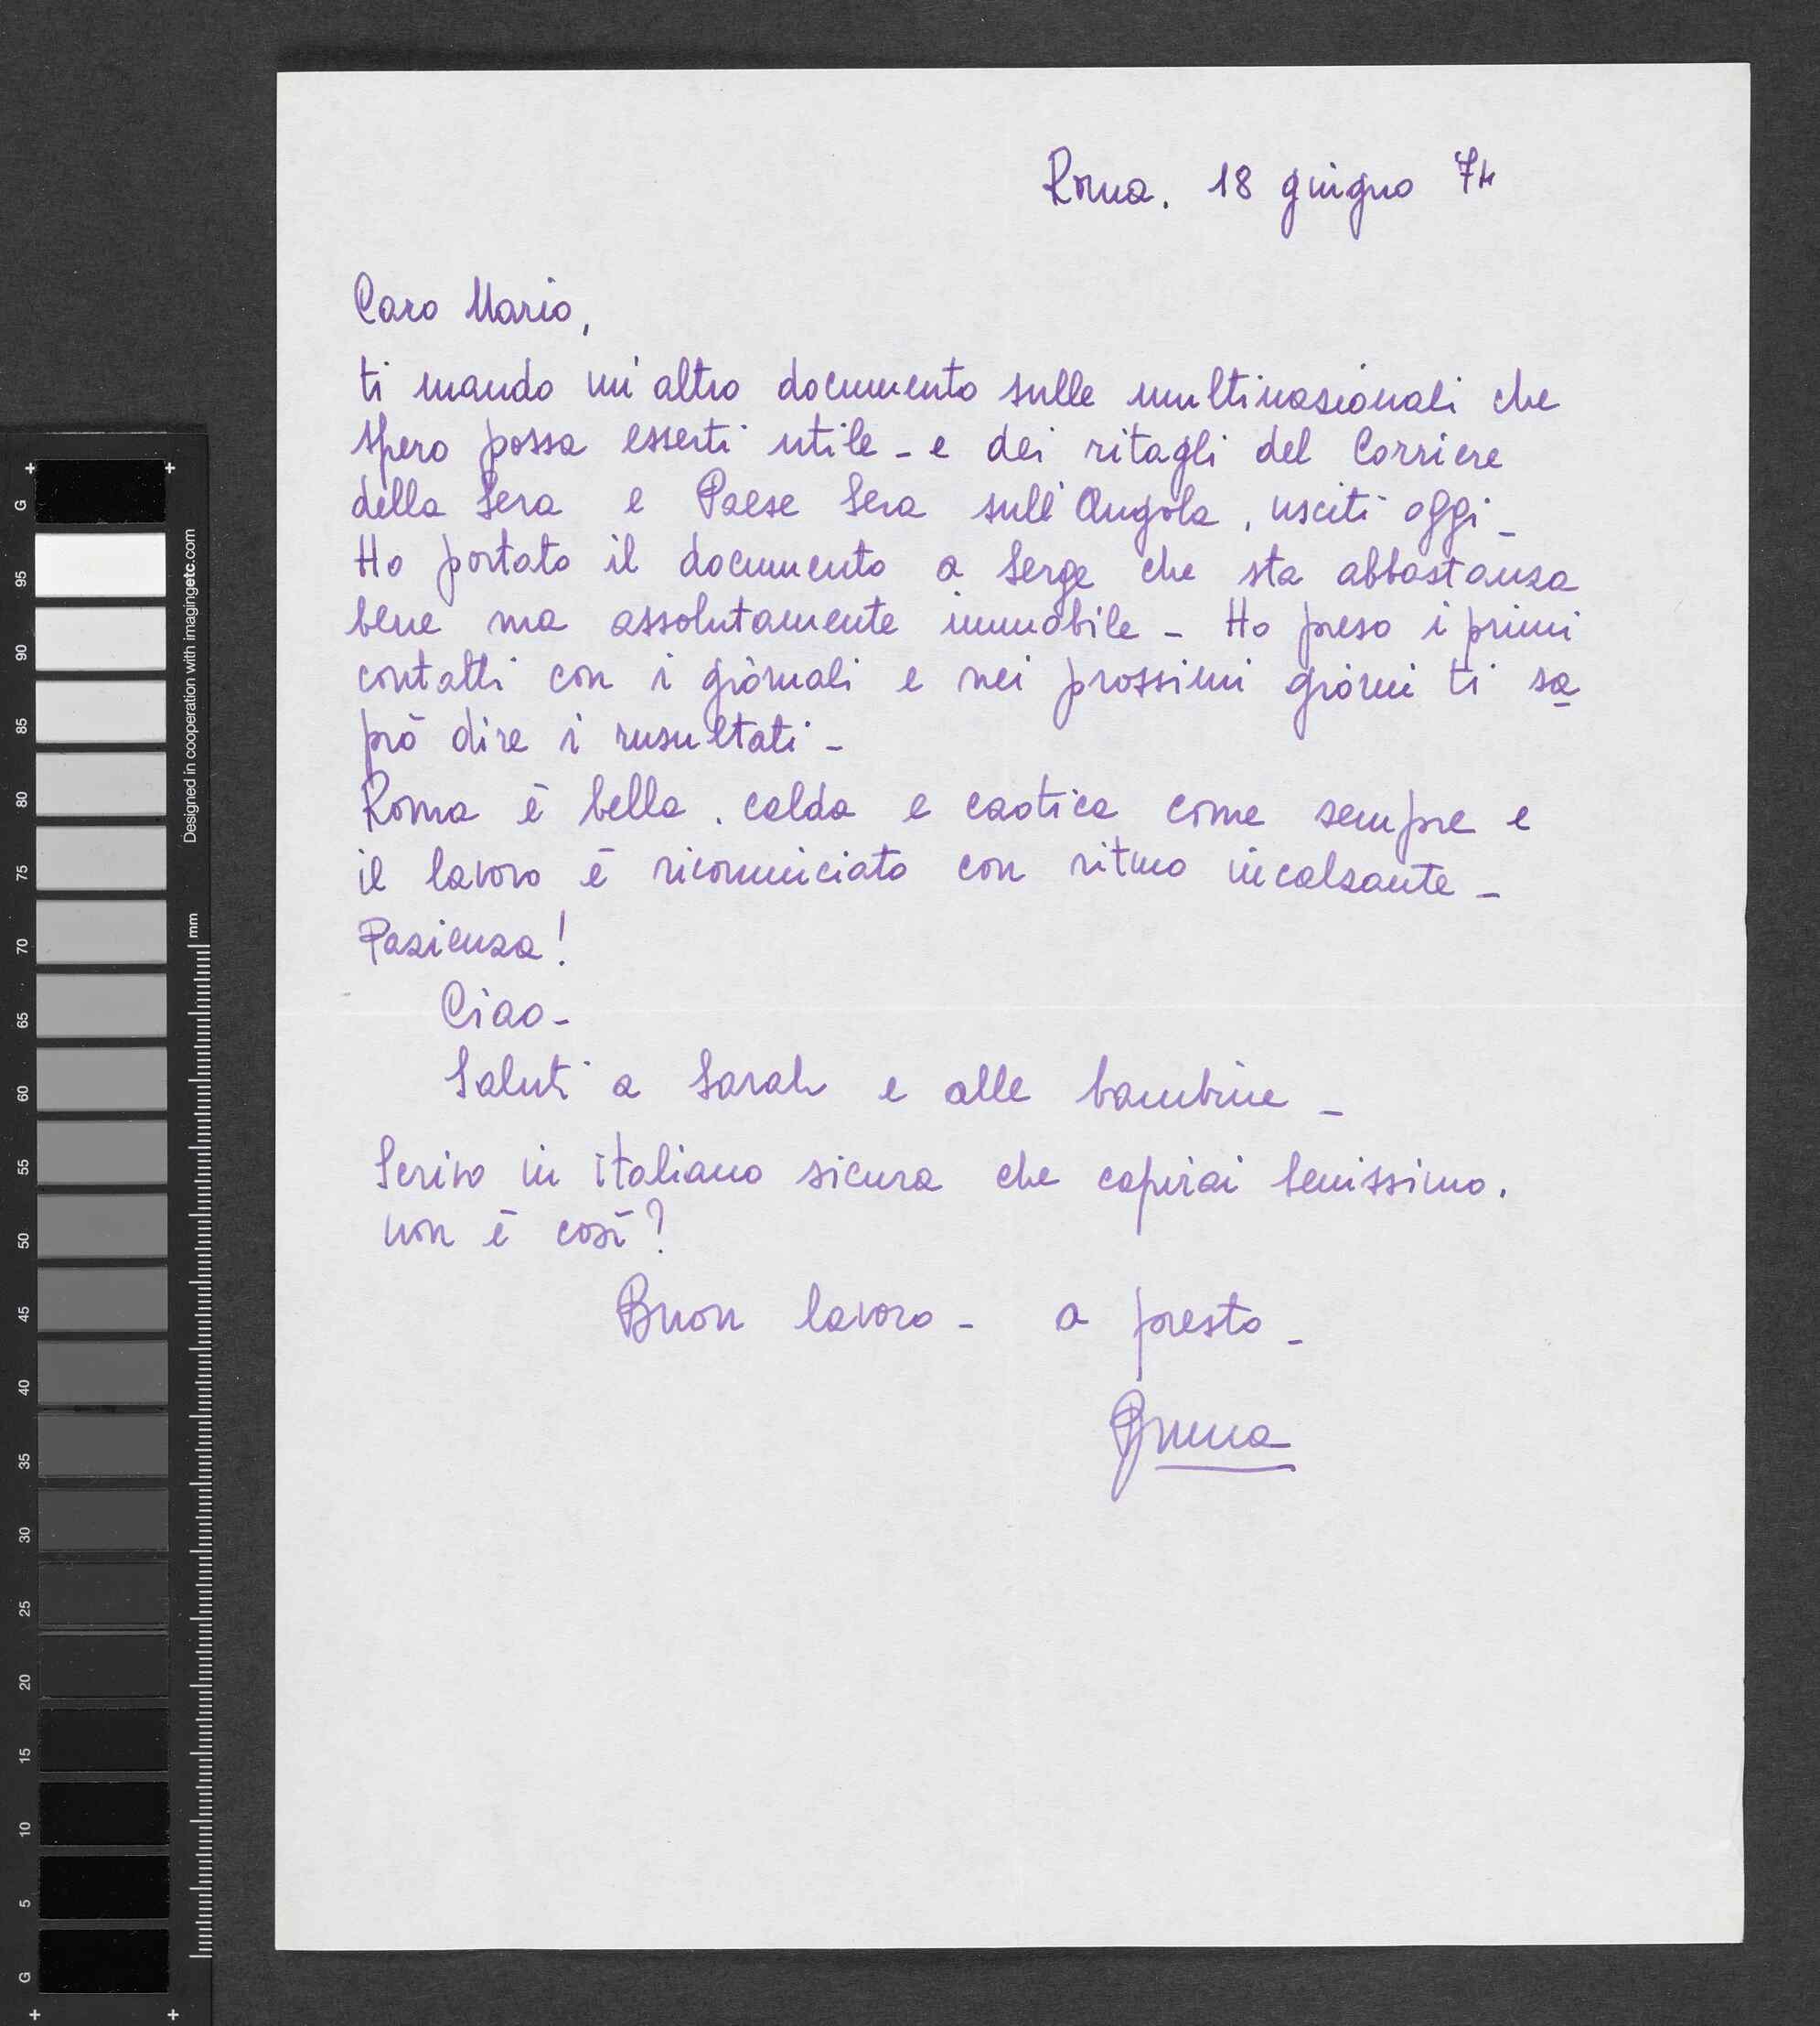 Roma. 18 giugno 74
Caro Mario,
ti mando un'altro documento sulle multinazionali che
spero possa esserti utile - e dei ritagli del Corriere
della Sera e Paese Sera sull'Angola, usciti oggi -
Ho portato il documento a Serge che sta abbastanza
bene ma assolutamente immobile - Ho preso i primi
contatti con i giornali e nei prossimi giorni ti sa
prò dire i rusultati -
Roma è bella. calda e caotica come sempre e
il lavoro è ricominciato con ritmo incalzante -
Pazienza!
Ciao -
Saluti a Sarah e alle bambine -
Scrivo in italiano sicura che capirai benissimo.
non è così?
Buon lavoro - a presto -
G
95
90
85
80
75
70
65
60
55
50
45
40
35
30
25
20
15
10
5
G
mm
Designed in cooperation with imagingetc.com